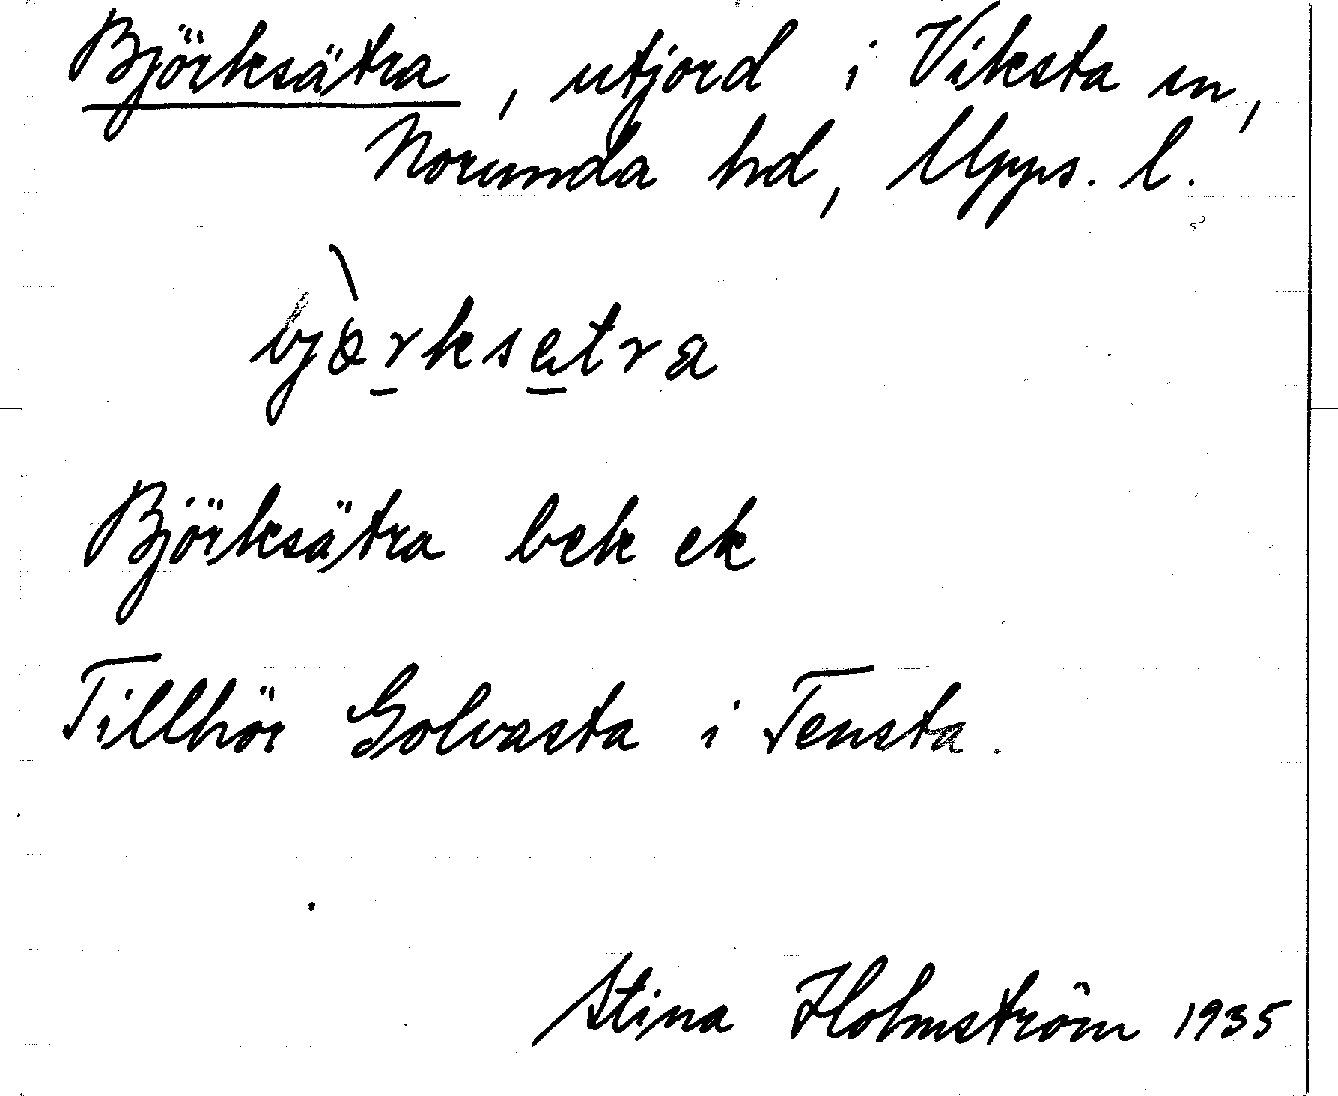 Björksätra, utjord i Viksta sn,
Norunda hd, Upps. l.
bjòrksatra
Björksätra bek ek
Tillhör Golvasta i Tensta.
Stina Holmström 1935